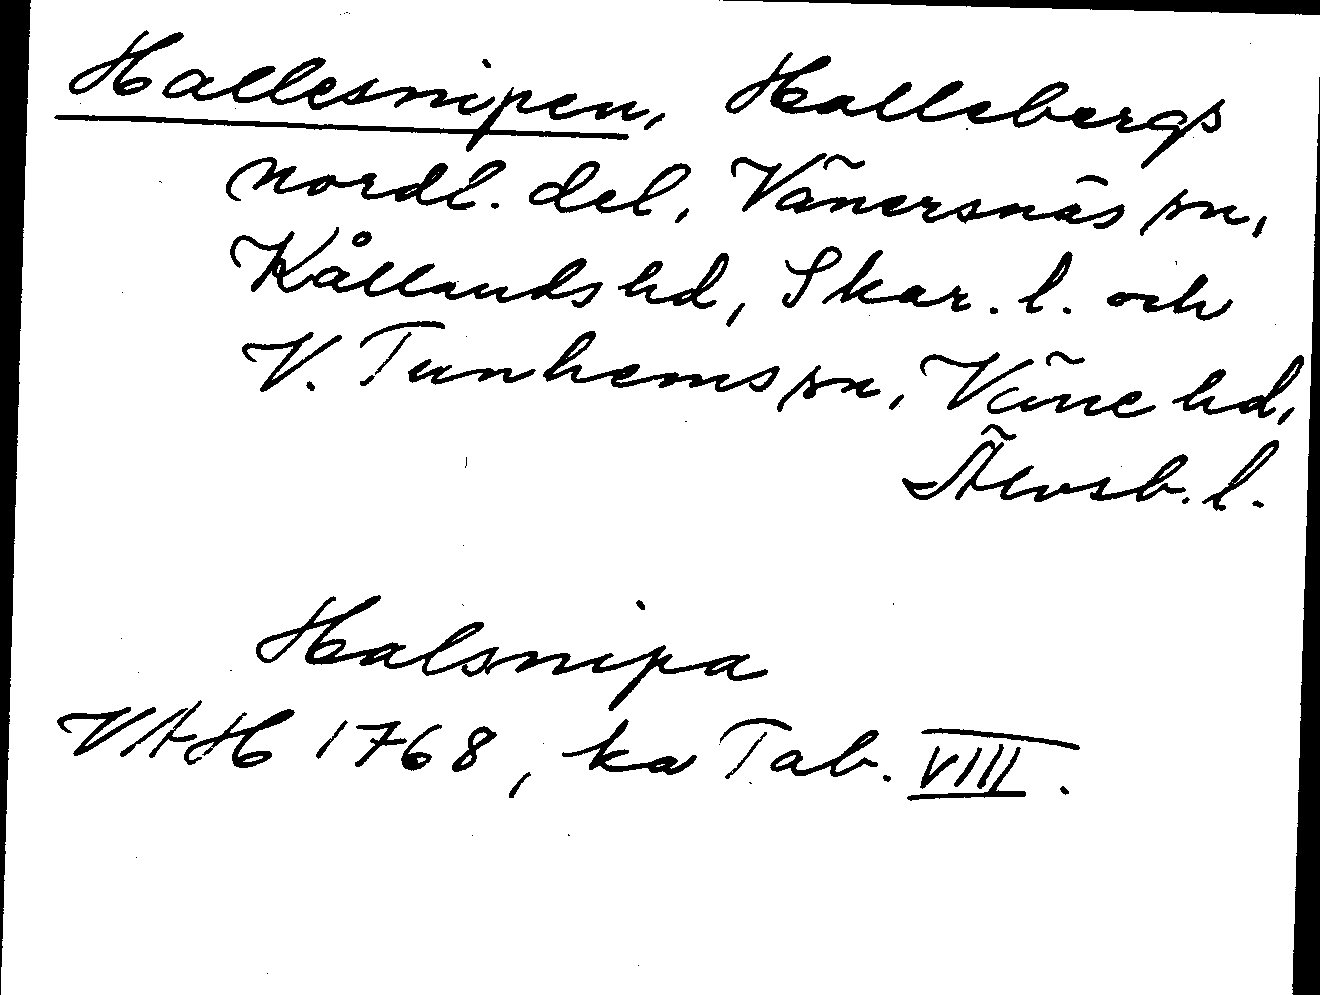 Hallesnipen, Hallebergs
nordl. del, Vänersnäs sn,
Kållands hd, Skar. l. och
V. Tunhems sn, Väne hd,
Älvsb. l.
Halsnipa
VAH 1768, ka Tab. VIII.